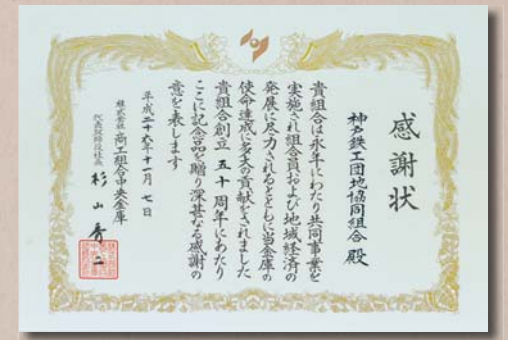 感謝状
神戸鉄工団地協同組合 殿
貴組合は永年にわたり共同事業を
実施され組合員および地域経済の
発展に尽力されるとともに当金庫の
使命達成に多大の貢献をされました
貴組合創立 五十周年にあたり
ここに記念品を贈り深甚なる感謝の
意を表します
平成二十六年十一月 七日
株式会社 商工組合中央金庫
代表取締役社長 杉山秀二